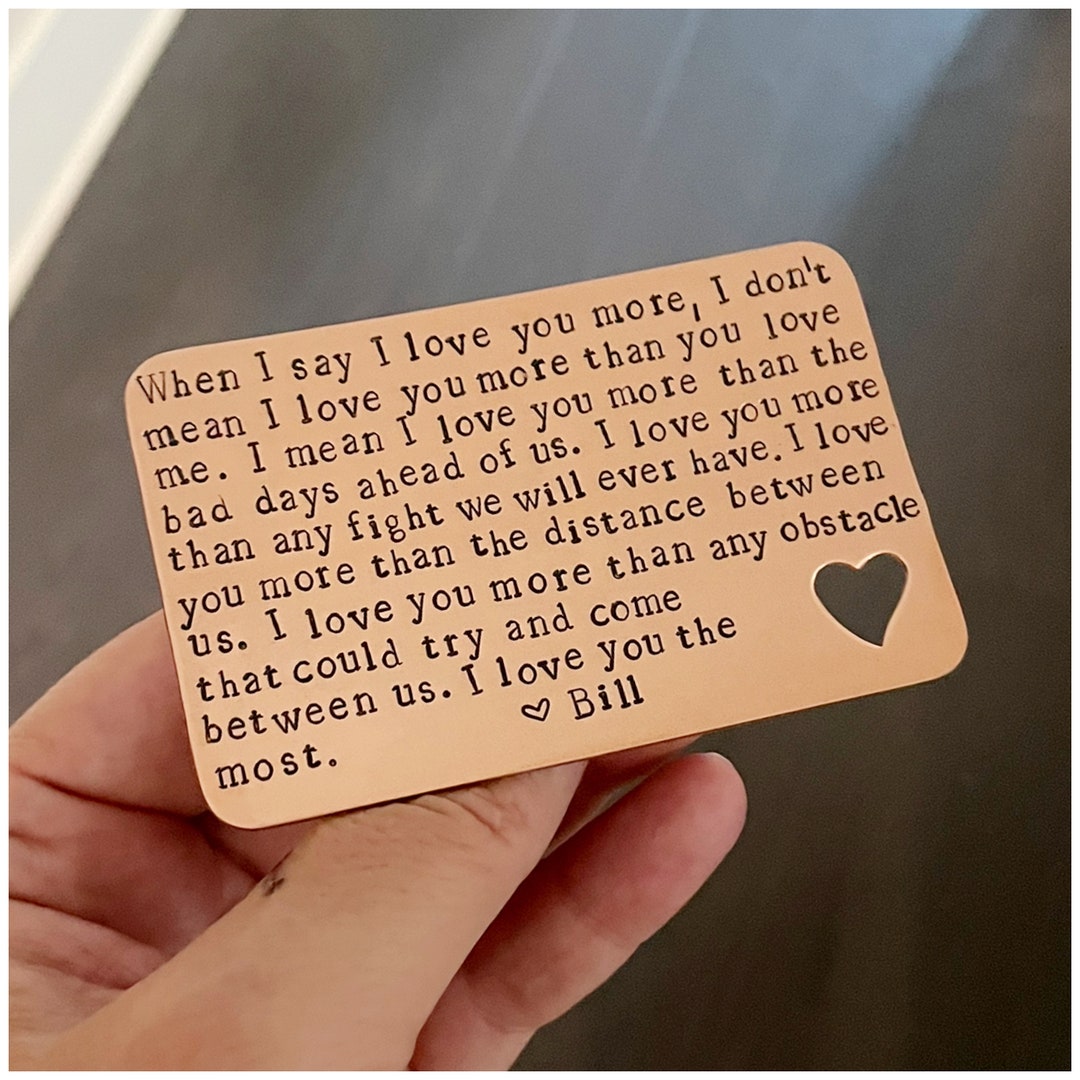 When I say I love you more, I don't
mean I love you more than you love
me. I mean I love you more than the
bad days ahead of us. I love you more
than any fight we will ever have. I love
you more than the distance between
us. I love you more than any obstacle
that could try and come
between us. I love you the
most.
♡ Bill